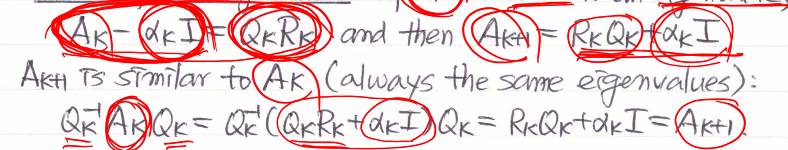 A_K - α_K I = Q_K R_K and then A_{K+1} = R_K Q_K + α_K I
A_{K+1} is similar to A_K (always the same eigenvalues):
Q_K^{-1} A_K Q_K = Q_K^{-1} (Q_K R_K + α_K I) Q_K = R_K Q_K + α_K I = A_{K+1}.